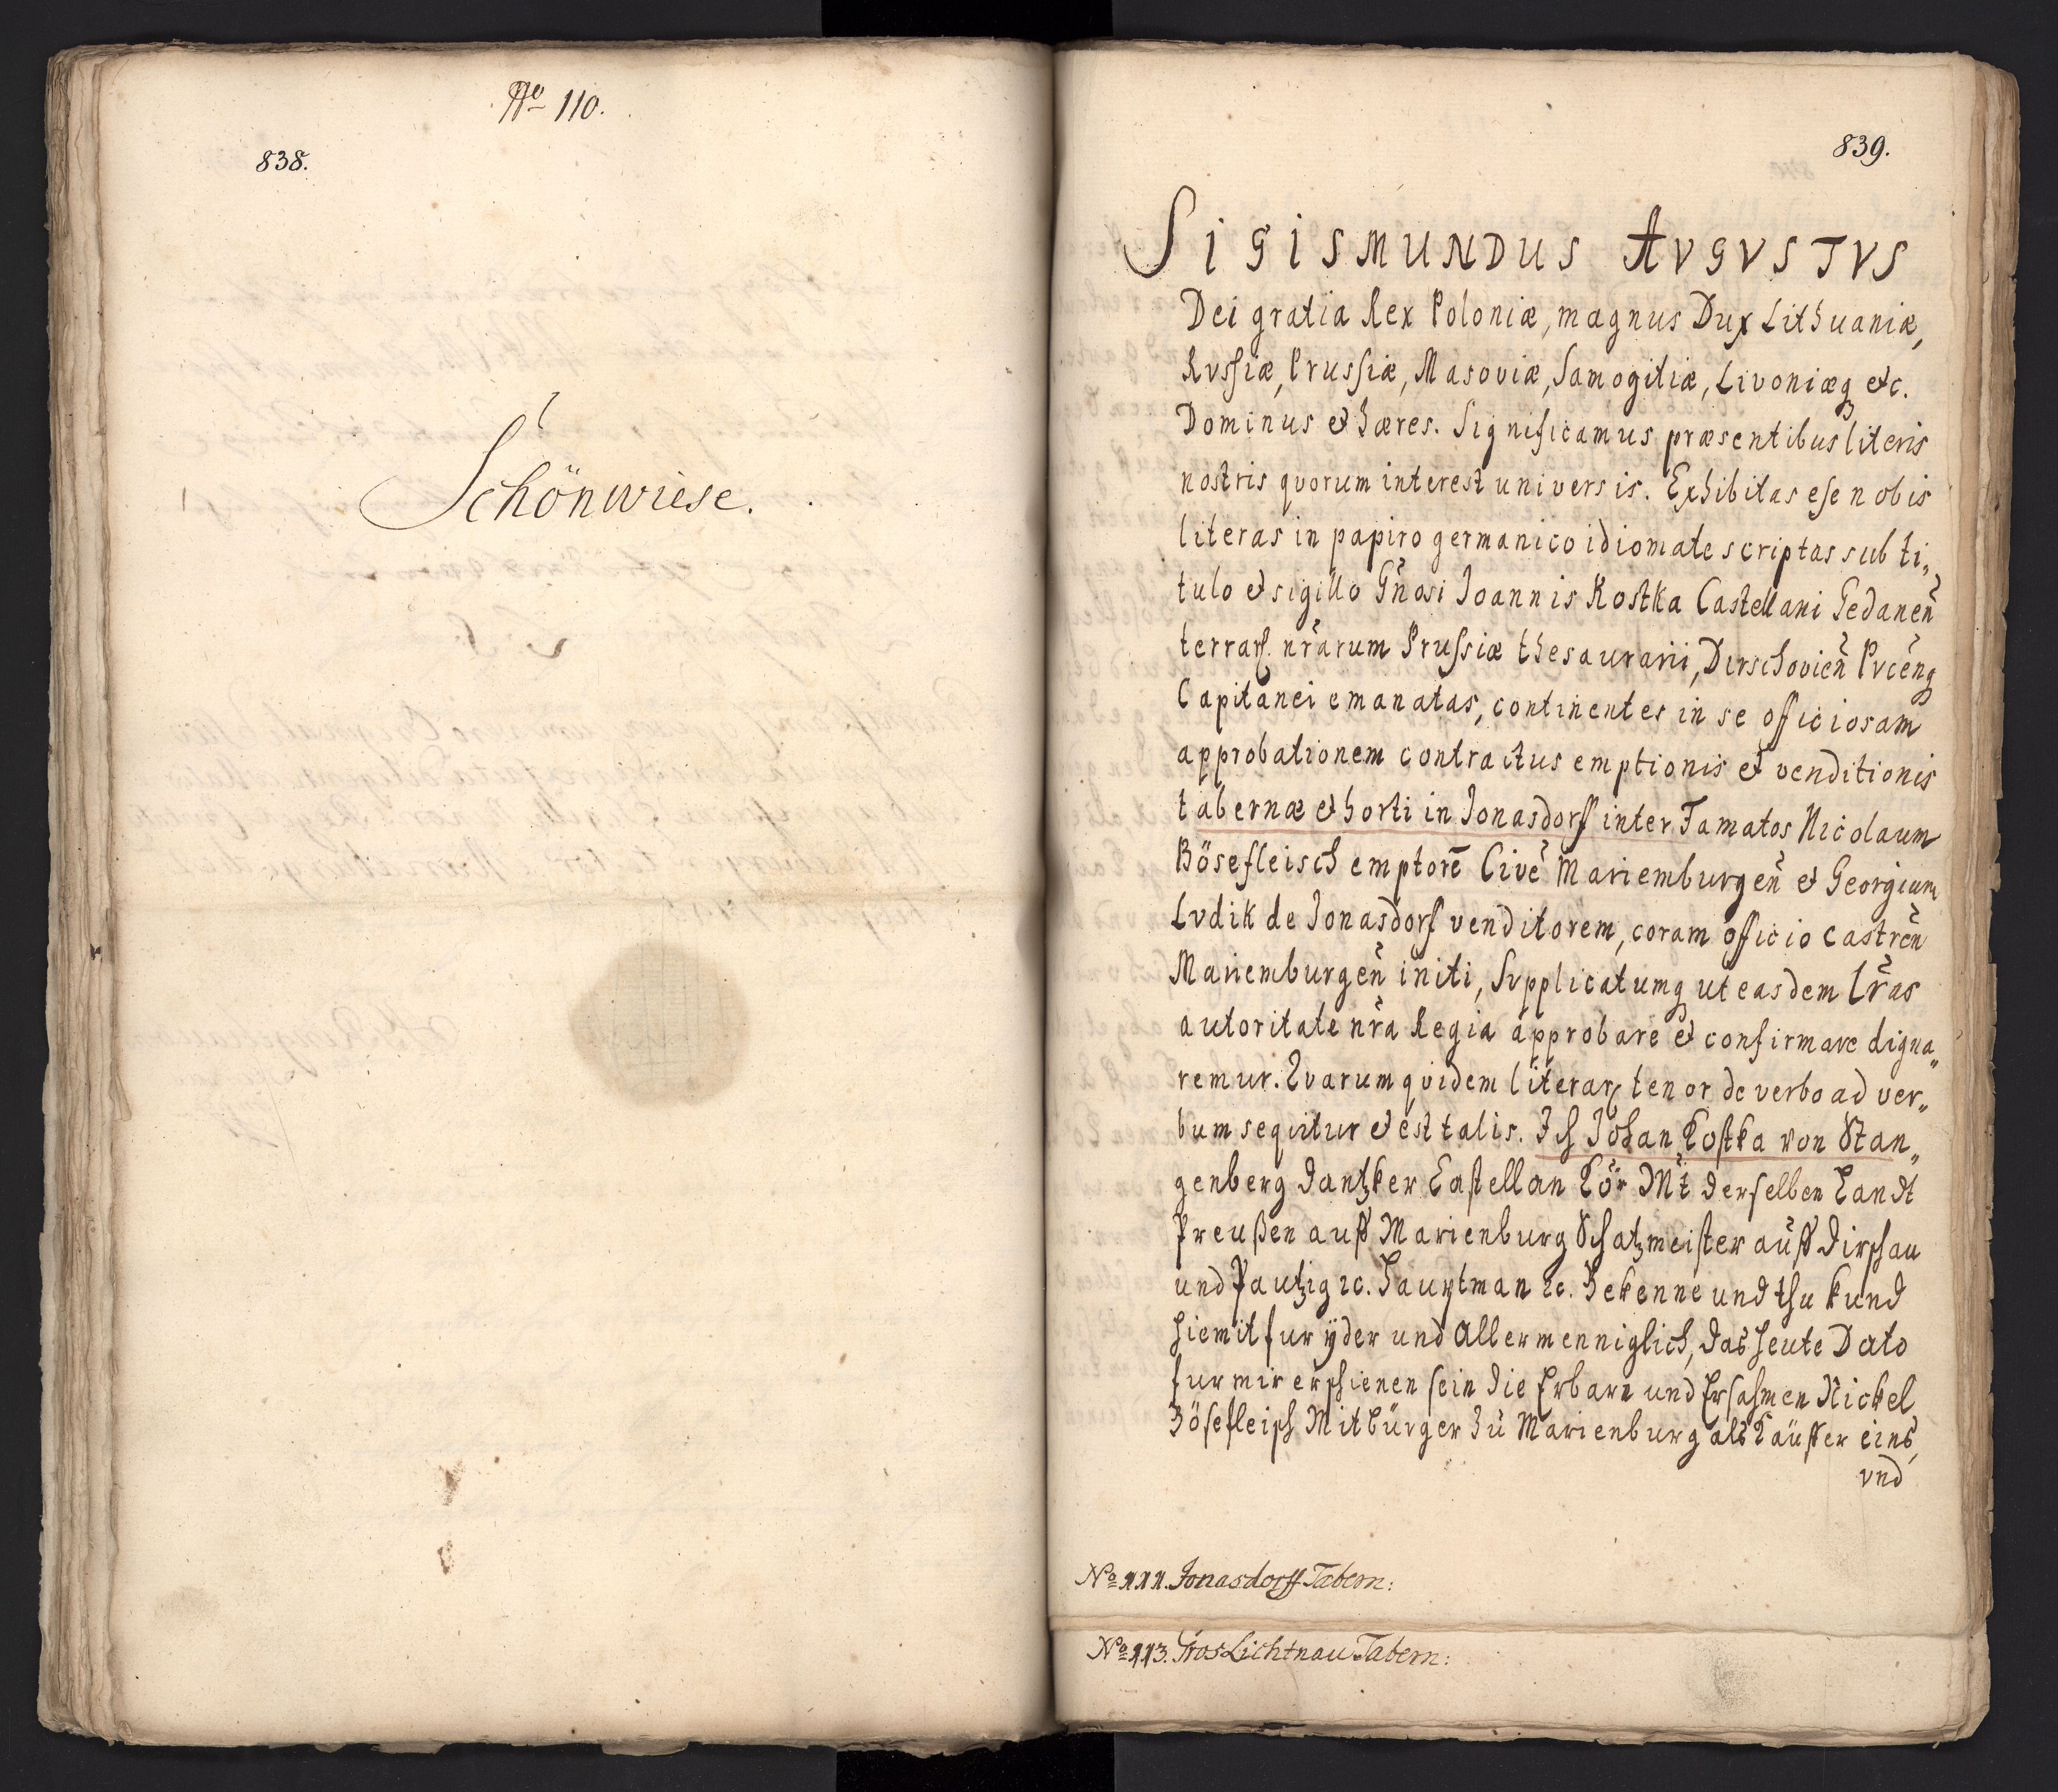 No 110.
838.
Schönwiese.
839.
SIGISMUNDUS AVGVSTVS
Dei gratia Rex Poloniæ, magnus Dux Lithuaniæ,
Rvssiæ, Prussiæ, Masoviæ, Samogitiæ, Livoniæq etc.
Dominus et hæres. Significamus præsentibus literis
nostris qvorum interest universis. Exhibitas ese nobis
literas in papiro germanico idiomate scriptas sub ti„
tulo et sigillo Gñosi Joannis Kostka Castellani Gedaneñ
terrar. nr̃arum Prussiæ thesaurarii, Dirschovieñ Pvcẽnq
Capitanei emanatas, continentes in se officiosam
approbationem contractus emptionis et venditionis
tabernæ et horti in Jonasdorff inter Famatos Nicolaum
Bösefleisch emptorē Civē Mariemburgeñ et Georgium
Lvdik de Jonasdorf venditorem, coram officio castreñ
Mariemburgeñ initi, Svpplicatumq ut easdem lr̃as
autoritate nr̃a Regia approbare et confirmare digna„
remur. Qvarum qvidem literar. tenor de verbo ad ver„
bum seqvitur et est talis. Ich Johan Kostka von Stan„
genberg dantzker Castellan Kör Mt̃ derselben Landt
Preußen auff Marienburg Schatzmeister auff Dirschau
und Pautzig ꝛc. Hauptman ꝛc. Bekenne und thu kund
hiemit fur ÿder und allermenniglich, das heute Dato
fur mir erschienen sein die Erbarn und Ersahmen Nickel
Bösefleisch Mitbürger zu Marienburg als Käuffer eins,
vnd
No 111. Jonasdorff Tabern:
No 113. Gros Lichtnau Tabern: